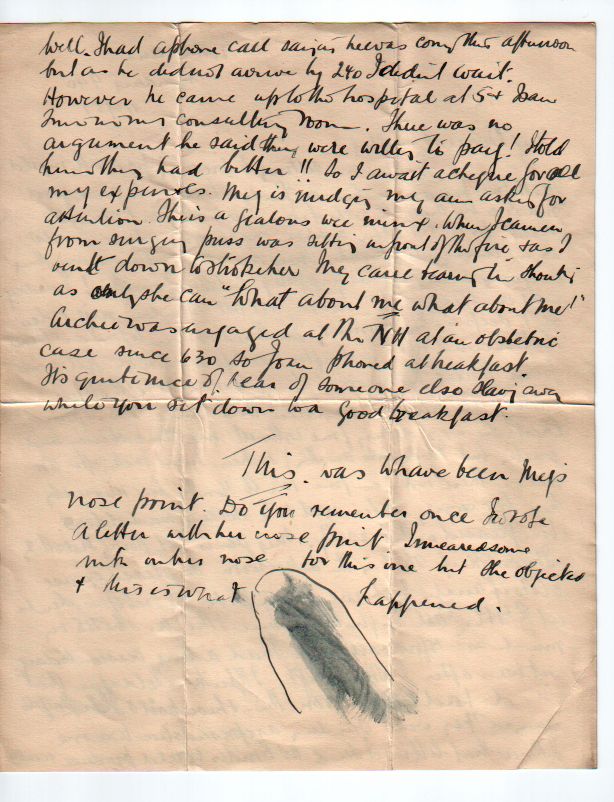 well. I had a phone call saying he was coming this afternoon
but as he did not arrive by 240 I didn't wait.
However he came up to the hospital at 5 + I saw
him in consulting room. There was no
argument he said they were willing to pay! I told
him they had better!! So I await a cheque for all
my expenses. Meg is nudging my arm asking for
attention. She is a jealous wee minx. When I came in
from surgery puss was sitting in front of the fire + as I
went down to stroke her Meg came tearing in shouting
as only she can "What about me what about me!"
Archie was engaged at the NH at an obstetric
case since 630 so Joan phoned at breakfast.
Its quite nice to hear of someone else slaving away
while you sit down to a good breakfast.
This was to have been Meg's
nose print. Do you remember once I wrote
a letter with her nose print. I smeared some
ink on her nose for this one but she objected
+ this is what happened.